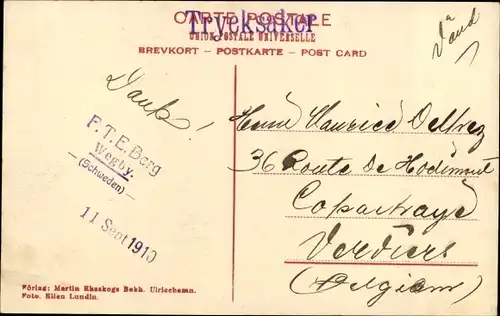 CARTE POSTALE
Trycksaker
UNION POSTALE UNIVERSELLE
BREVKORT – POSTKARTE – POST CARD
Dank!
F. T. E. Berg
Wegby.
(Schweden)
11 Sept 1910
Herrn Maurice Delfrez
36 Route de Hodimont
Verviers
(Belgien)
Förlag: Martin Ekeskogs Bokh. Ulricehamn.
Foto. Ellen Lundin.